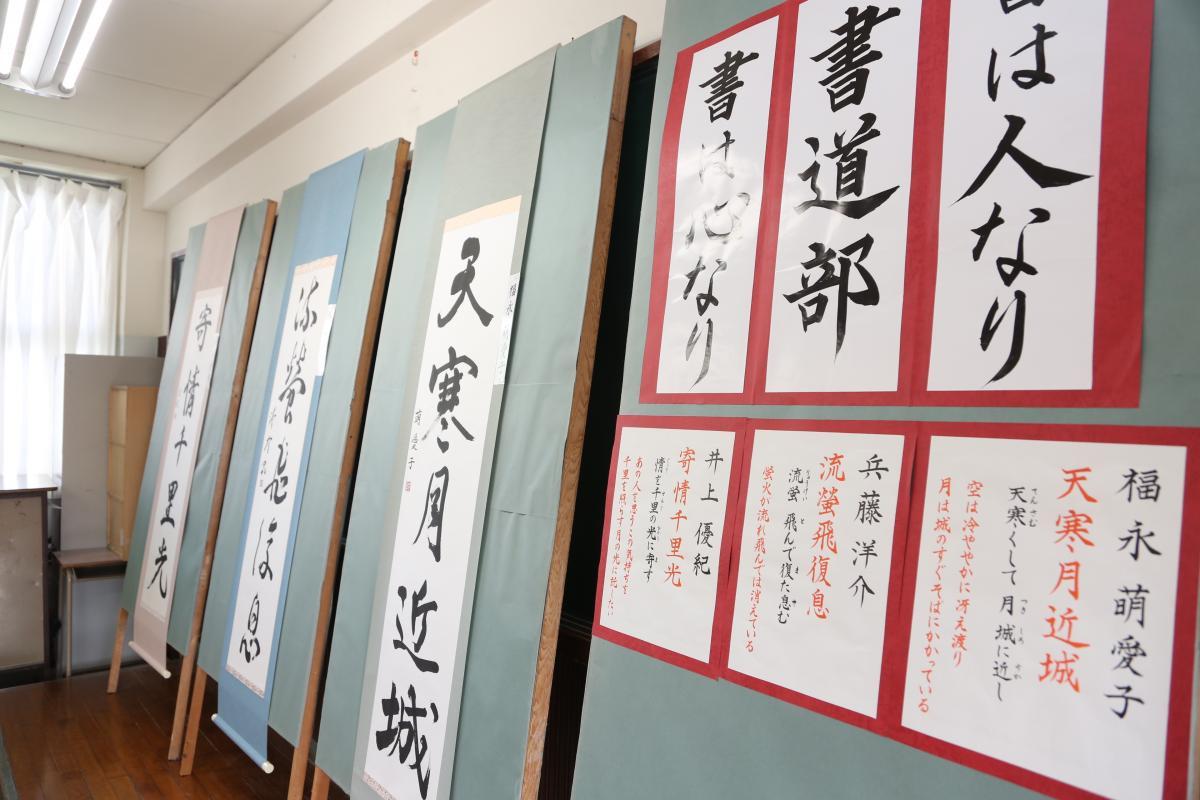 書は人なり
書道部
書は心なり
福永 萌愛子
天寒月近城
天寒くして 月 城に近し
空は冷ややかに冴え渡り
月は城のすぐそばにかかっている
兵藤 洋介
流螢飛復息
流螢 飛んで復た息む
蛍火が流れ飛んでは消えている
井上 優紀
寄情千里光
情を千里の光に寄す
あの人を思うこの気持ちを
千里を照らす月の光に託したい
天寒月近城
萌愛子
福永
流螢飛復息
寄情千里光